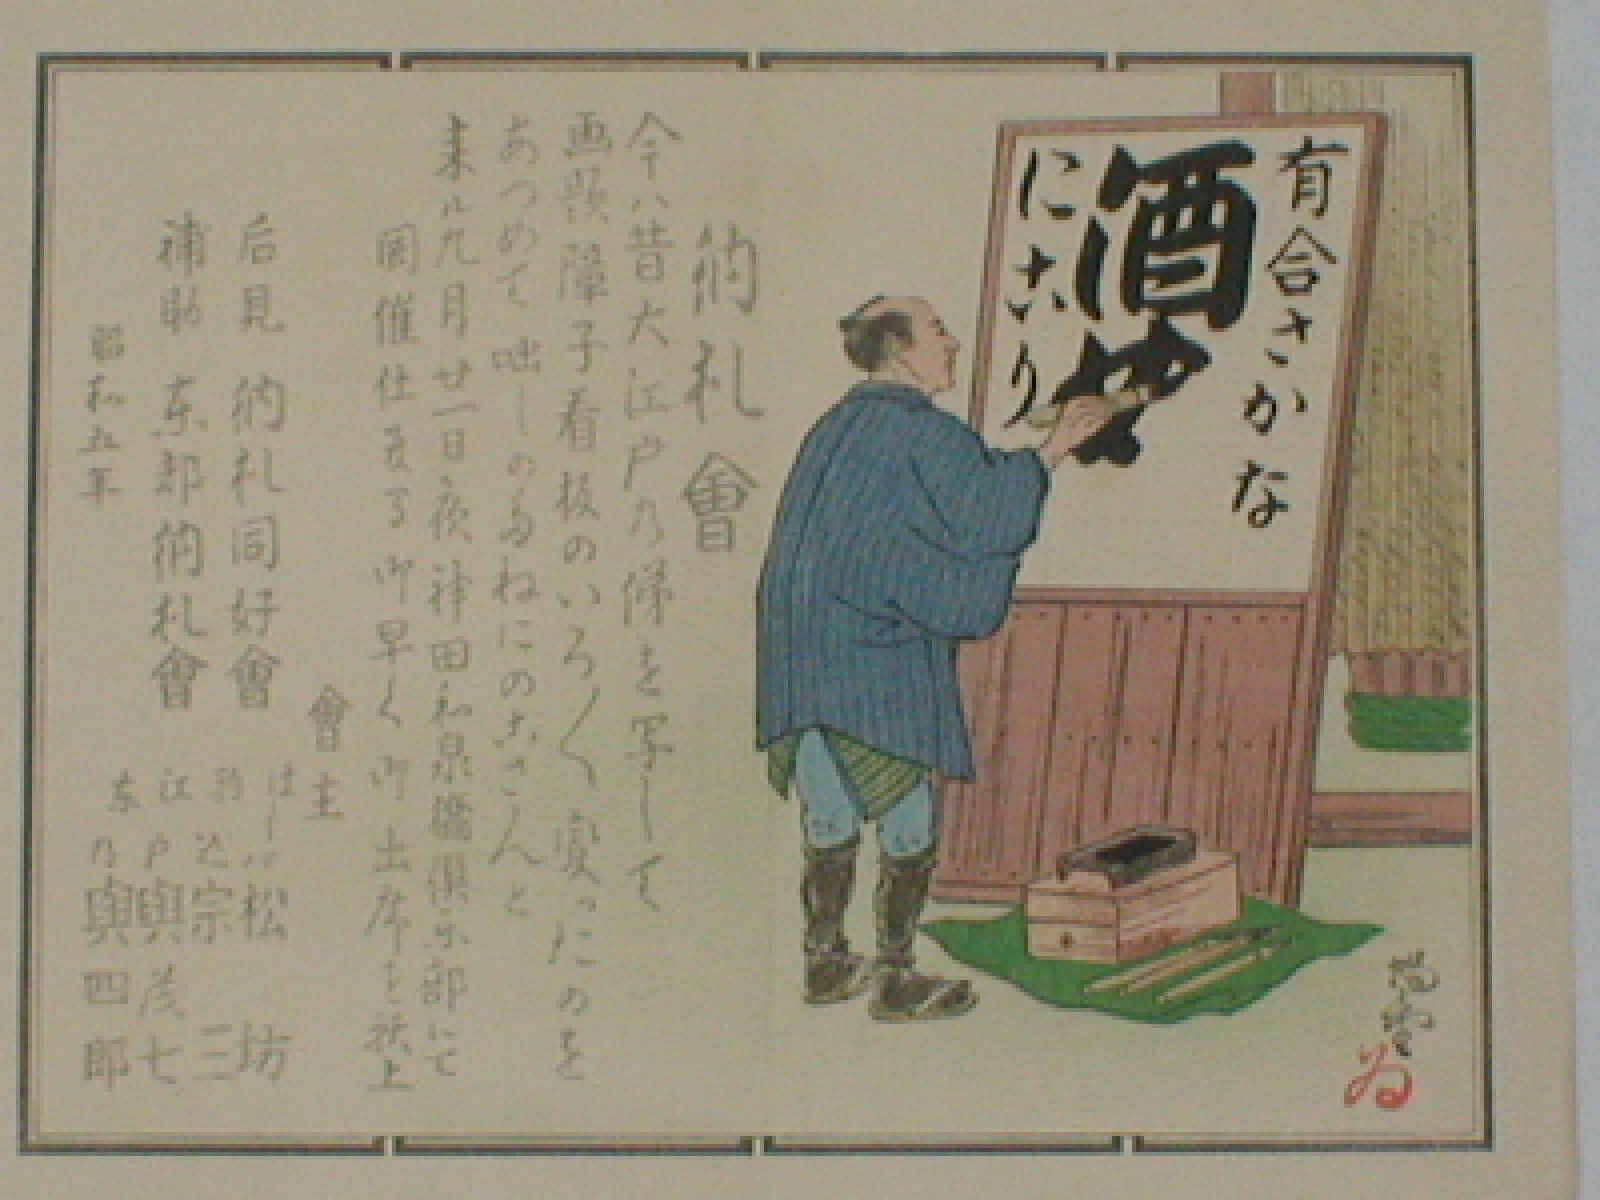 有合さかな
酒や
にごり
納札會
今ハ昔大江戸乃俤を写して
画影障子看板のいろ〱変ったのを
あつめて咄しのたねにのこさんと
来ル九月廿一日夜神田和泉橋倶楽部にて
開催仕候間御早〱御出席を祈上
會主
后見 納札同好會
補助 东都納札會
昭和五年
松坊
宗三
江戸與茂七
东乃與四郎